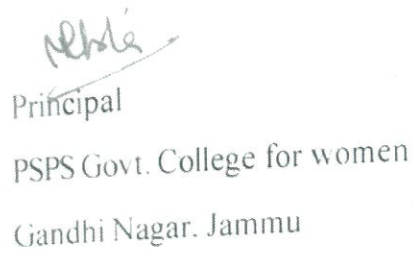 Principal
PSPS Govt. College for women
Gandhi Nagar. Jammu